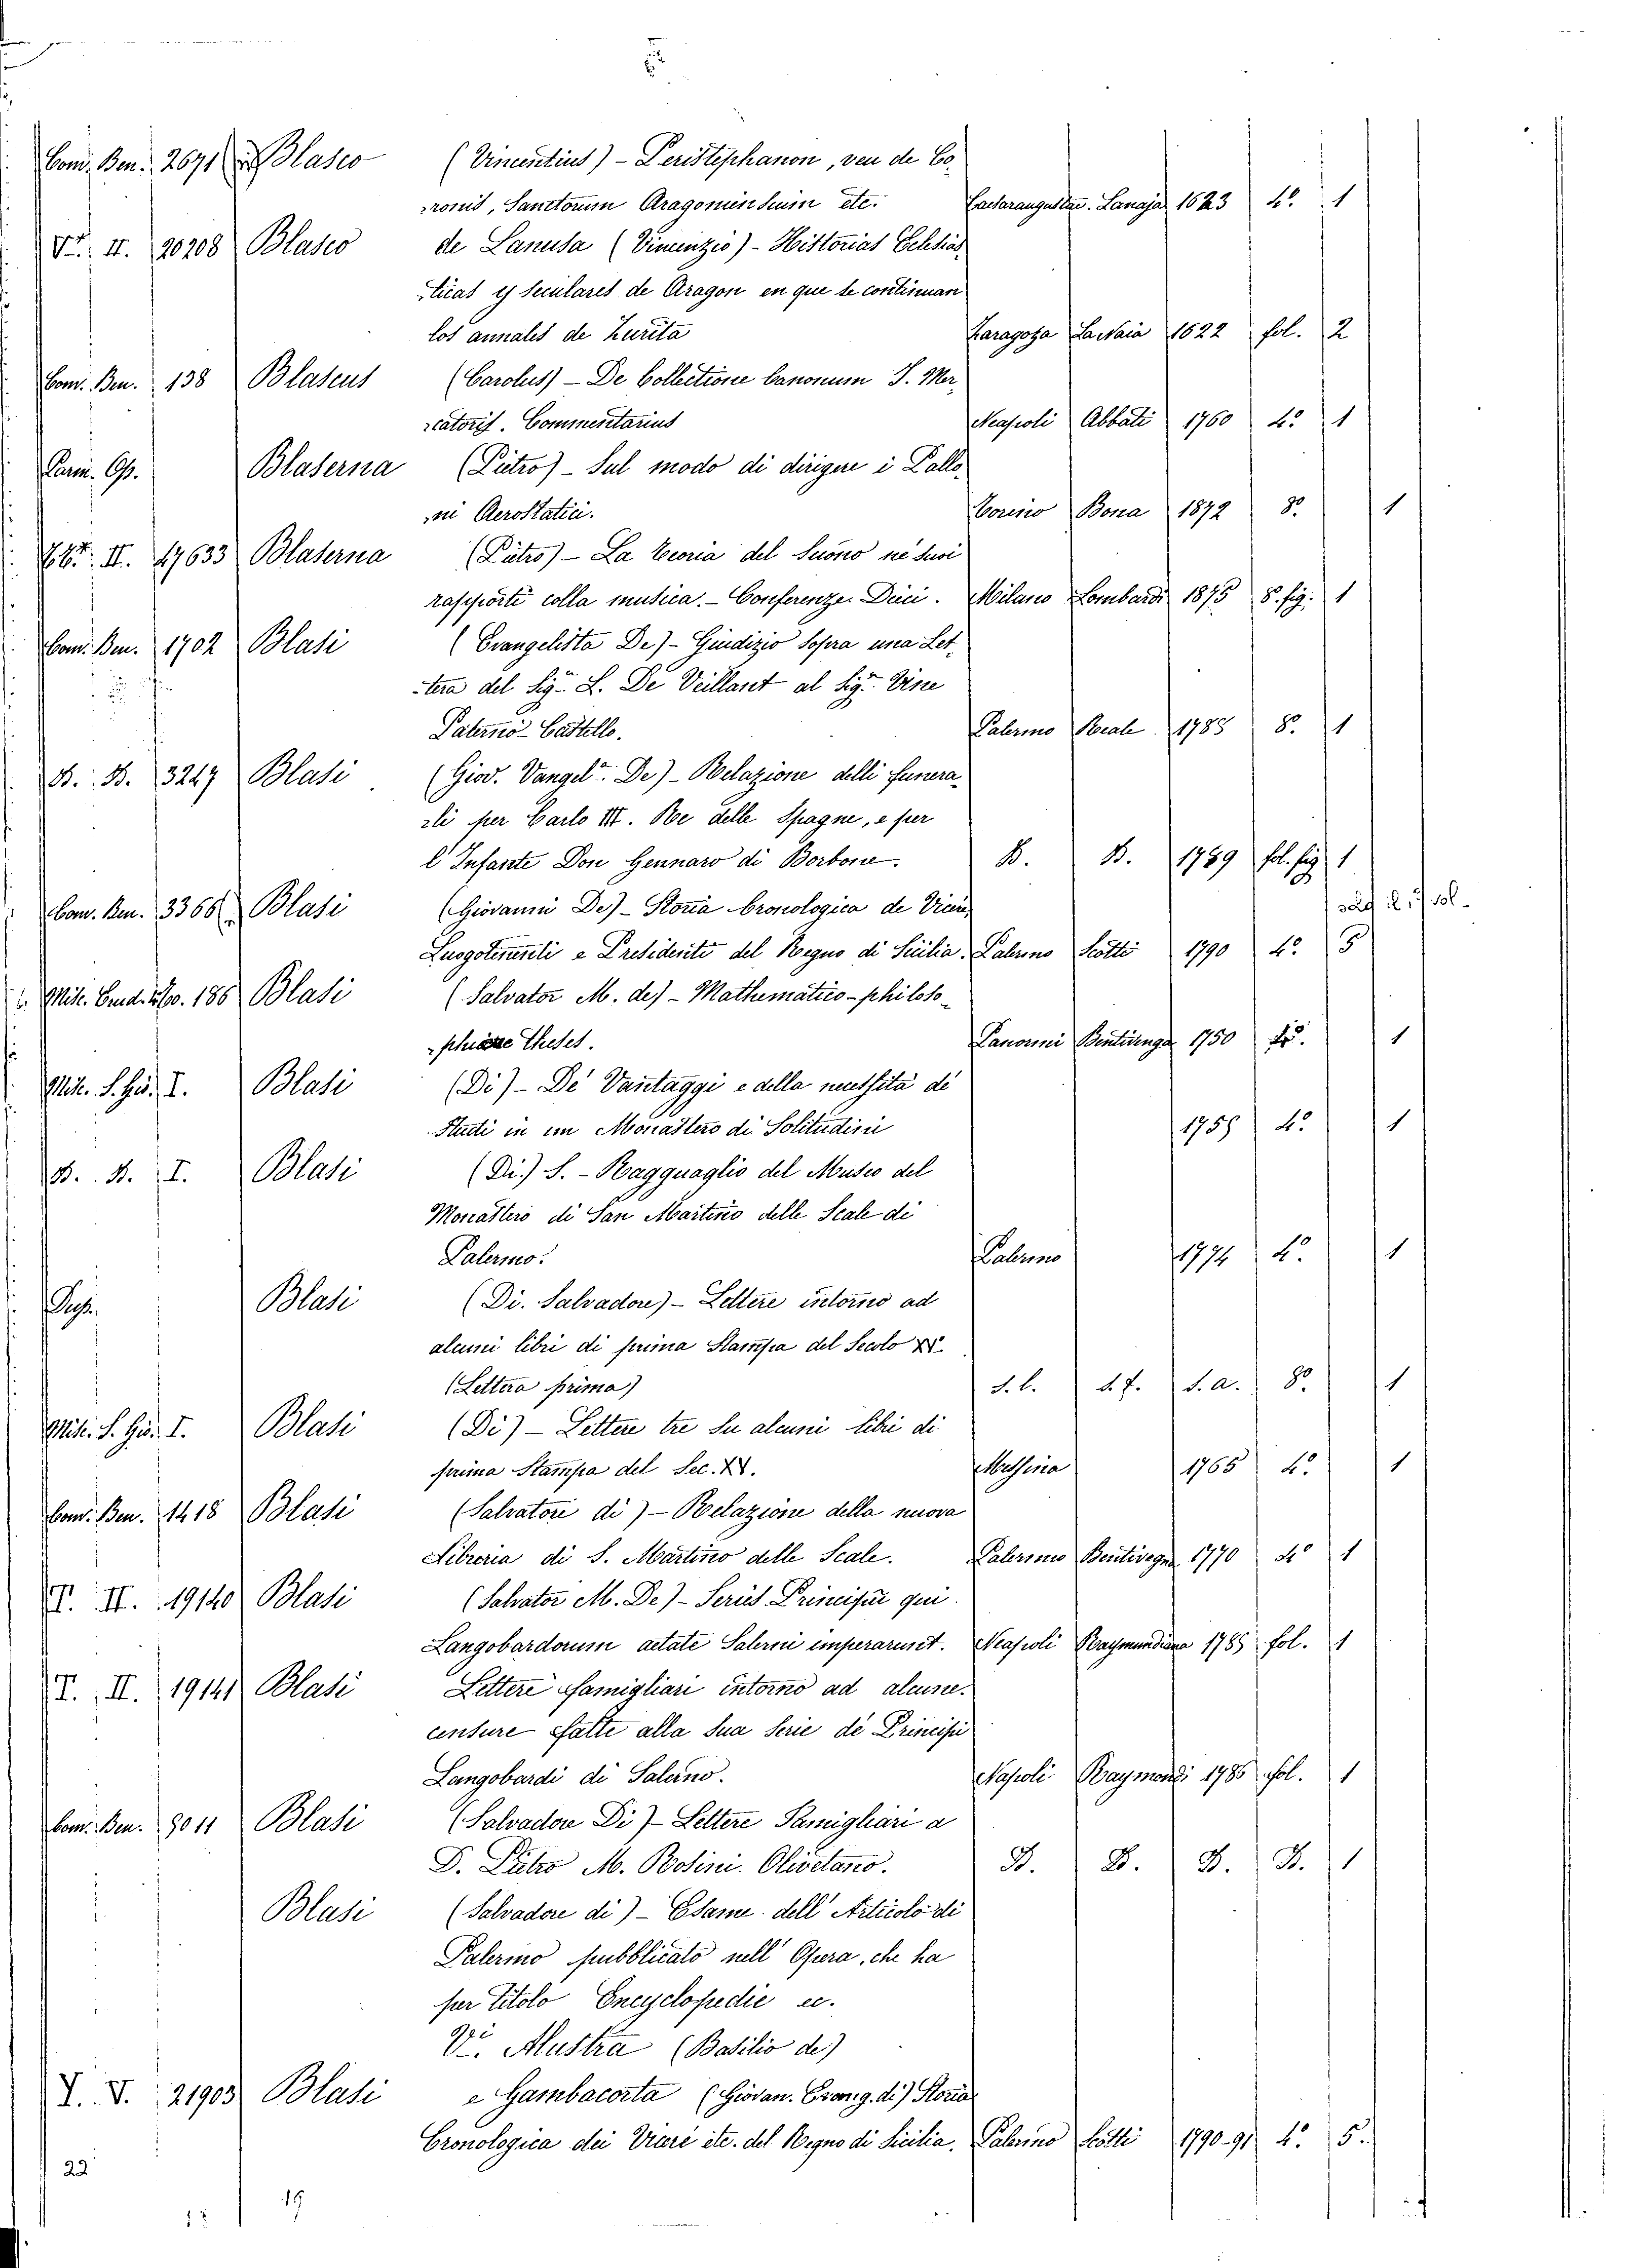 Com. Ben. 2671 Blasco (Vincentius) - Peristephanon, seu de Co-
ronis, Sanctorum Aragonensium etc. Caesaraugustae. Lanaja 1623 4º 1
V.t. II. 20208 Blasco de Lanusa (Vincenzio) - Historias Eclesias-
ticas y seculares de Aragon en que se continuan
los annales de Zurita Zaragoza Lanaia 1622 fol. 2
Com. Ben. 138 Blascus (Carolus) - De Collectione Canonum I. Mer-
catoris. Commentarius Neapoli Abbati 1760 4º 1
Carm. Op. Blaserna (Pietro) - Sul modo di dirigere i Pallo-
ni Aerostatici. Torino Bona 1872 8º 1
II. 17633 Blaserna (Pietro) - La teoria del Suono ne' suoi
rapporti colla musica. - Conferenze Dieci. Milano Lombardi 1875 8. fig. 1
Com. Ben. 1702 Blasi (Evangelista De) - Giudizio sopra una Let-
tera del Sigr. L. De Veillant al Sigr. Vine
Paternò-Castello. Palermo Reale 1785 8º 1
B. B. 3247 Blasi (Giov. Vangelª. De) - Relazione delli funera-
li per Carlo III. Re delle Spagne, e per
l'Infante Don Gennaro di Borbone. B. B. 1789 fol. fig. 1
Com. Ben. 3366 Blasi (Giovanni De) - Storia Cronologica de Vicerè,
Luogotenenti e Presidenti del Regno di Sicilia. Palermo Solli 1790 4º 5
Mis. Erud. 4to. 186 Blasi (Salvator M. de) - Mathematico-philoso-
phicae Theses. Panormi Bentivenga 1750 4º. 1
Mis. S. Gio. I. Blasi (Di) - De' Vantaggi e della necessità di
Studi in un Monastero di Solitudini 1755 4º 1
B. B. I. Blasi (Di.) S. - Ragguaglio del Museo del
Monastero di San Martino delle Scale di
Palermo. Palermo 1774 4º. 1
Dup. Blasi (Di. Salvadore) - Lettere intorno ad
alcuni libri di prima Stampa del Secolo XV.
(Lettera prima) S. l. s. t. s. a. 8º 1
Mis. S. Gio. I. Blasi (Di) - Lettere tre su alcuni libri di
prima Stampa del Sec. XV. Messina 1765 4º 1
Com. Ben. 1418 Blasi (Salvatore di) - Relazione della nuova
Libreria di S. Martino delle Scale. Palermo Bentivegna 1770 4º 1
T. II. 19140 Blasi (Salvator M. De) - Series Principum qui
Langobardorum aetate Salerni imperarunt. Neapoli Raymundiana 1785 fol. 1
T. II. 19141 Blasi Lettere famigliari intorno ad alcune
censure fatte alla sua serie de' Principi
Langobardi di Salerno. Napoli Raymondi 1786 fol. 1
Com. Ben. 3011 Blasi (Salvadore Di) - Lettere Famigliari a
D. Pietro M. Rosini. Olivetano. B. B. B. B. 1
Blasi (Salvadore di) - Esame dell'Articolo di
Palermo pubblicato nell'Opera, che ha
per titolo Encyclopedie ec.
Vi. Alustra (Basilio de)
Y. V. 21903 Blasi e Gambacorta (Giovan. Evang. di) Storia
Cronologica dei Vicerè etc. del Regno di Sicilia. Palermo Solli 1790-91 4º. 5.
22
19